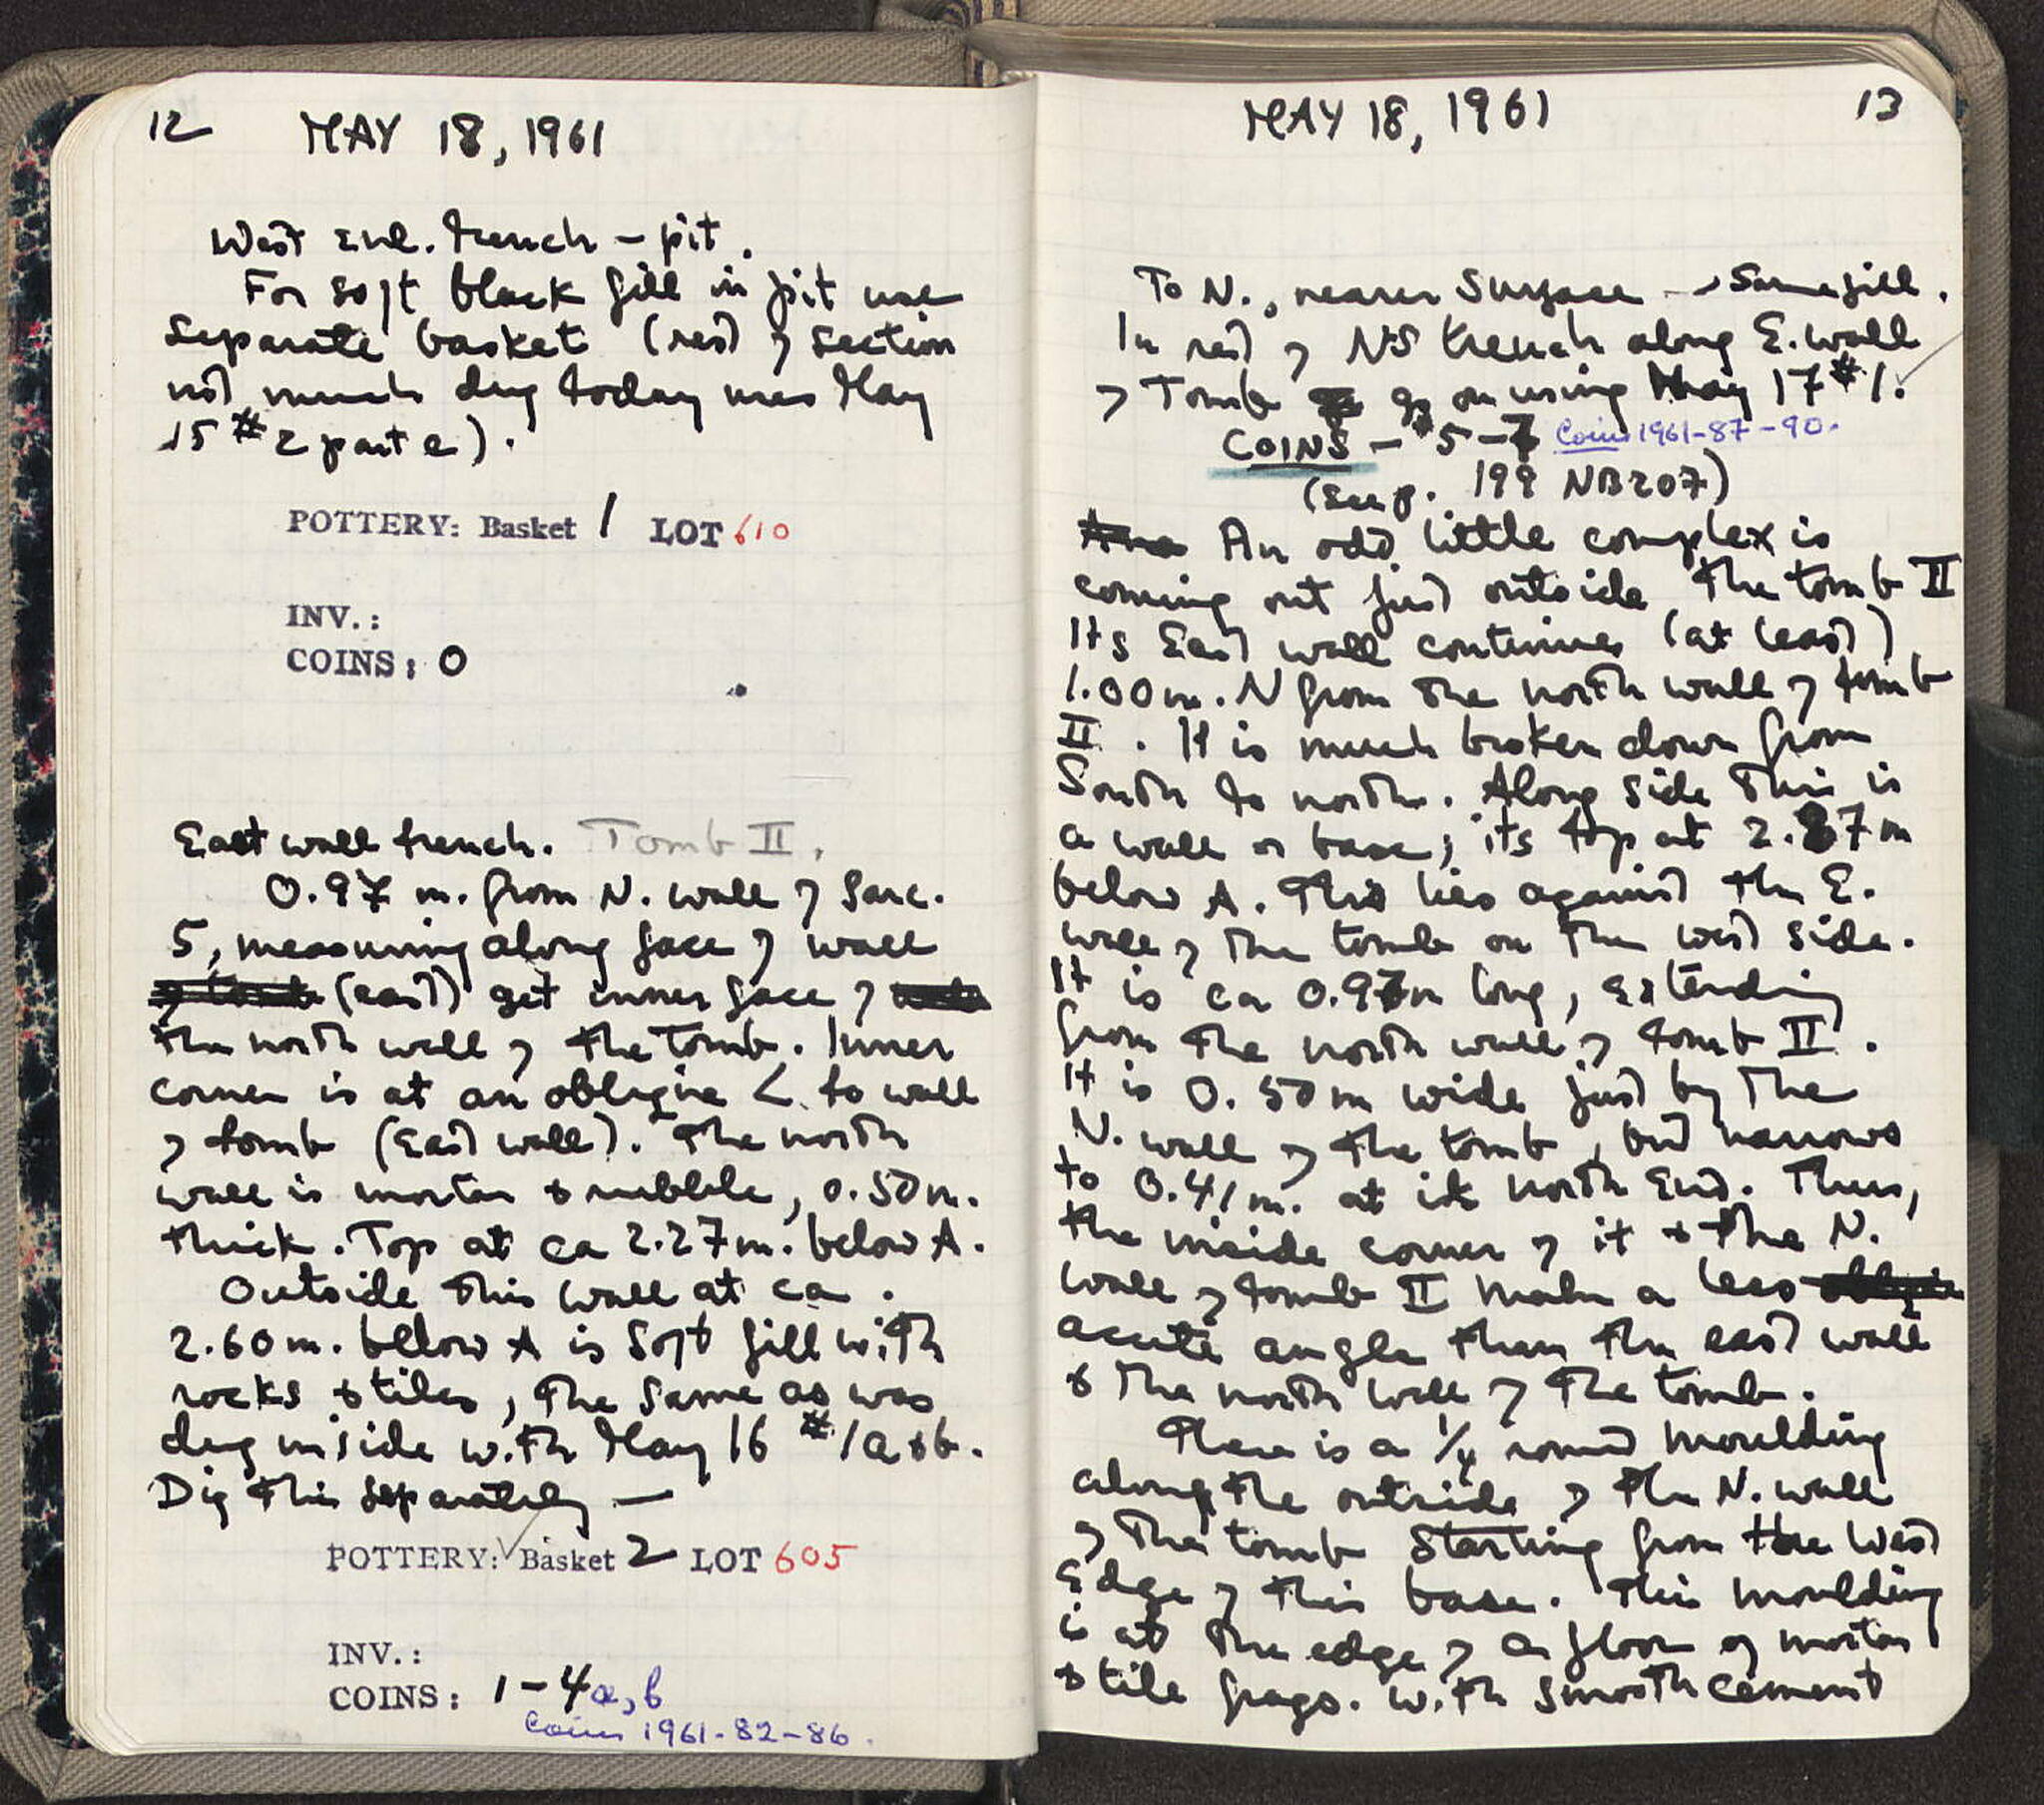 12 MAY 18, 1961
West enl. trench – pit.
For soft black fill in pit use
separate basket (rest of section
not much dug today uses May
15 #2 part e).
POTTERY: Basket 1 LOT 610
INV.:
COINS: 0
East wall trench. Tomb II.
0.97 m. from N. wall of Sarc.
5, measuring along face of wall
(east) get inner face of
the north wall of the tomb. Inner
corner is at an oblique < to wall
of tomb (East wall). The north
wall is mortar & rubble, 0.50 m.
thick. Top at ca 2.27 m. below A.
Outside this wall at ca.
2.60 m. below A is soft fill with
rocks & tiles, the same as was
dug inside with May 16 #1a&b.
Dig this separately —
POTTERY: Basket 2 LOT 605
INV.:
COINS: 1–4a,b
Coins 1961-82-86.
MAY 18, 1961 13
To N., nearer surface → same fill.
In rest of NS trench along E. wall
of Tomb go on using May 17 #1.
COINS – #5–7 Coins 1961-87-90.
(see p. 199 NB207)
An odd little complex is
coming out just outside the tomb II
Its East wall continues (at least)
1.00 m. N from the north wall of tomb
II. It is much broken down from
South to north. Along side this is
a wall or base; its top at 2.87 m
below A. This lies against the E.
wall of the tomb on the west side.
It is ca 0.97m long, extending
from the north wall of tomb II.
It is 0.50 m wide just by the
N. wall of the tomb, but narrows
to 0.41 m. at its north end. Thus,
the inside corner of it & the N.
wall of tomb II make a less
acute angle than the east wall
& the north wall of the tomb.
There is a 1/4 round moulding
along the outside of the N. wall
of the tomb starting from the West
edge of this base. This moulding
is at the edge of a floor of mortar
& tile frags. with smooth cement